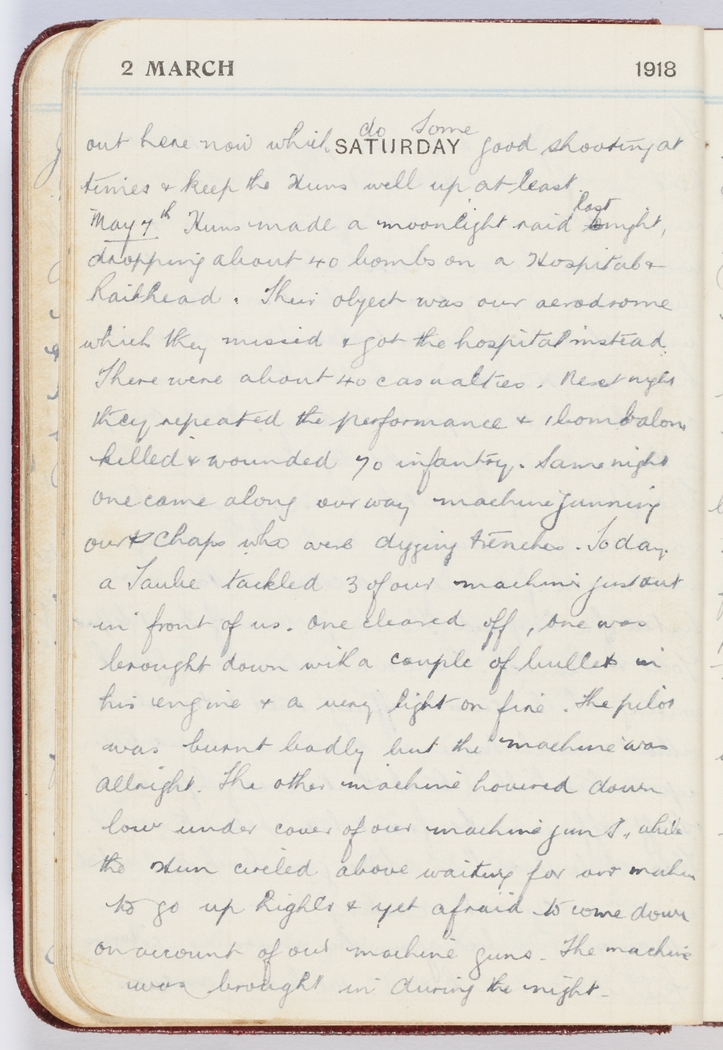 2 MARCH 1918
out here now which do some SATURDAY good shooting at
times & keep the Huns well up at least.
May 7th Huns made a moonlight raid last night,
dropping about 40 bombs on a Hospital &
Railhead. Their object was our aerodrome
which they missed & got the hospital instead.
There were about 40 casualties. Next night
they repeated the performance & 1 bomb alone
killed & wounded 70 infantry. Same night
one came along our way machine gunning
our chaps who were digging trenches. Today
a Taube tackled 3 of our machines just out
in front of us. One cleared off, one was
brought down with a couple of bullets in
his engine & a very light on fire. The pilot
was burnt badly but the machine was
allright. The other machine hovered down
low under cover of our machine guns, while
the Hun circled above waiting for our machine
to go up higher & yet afraid to come down
on account of our machine guns. The machine
was brought in during the night.